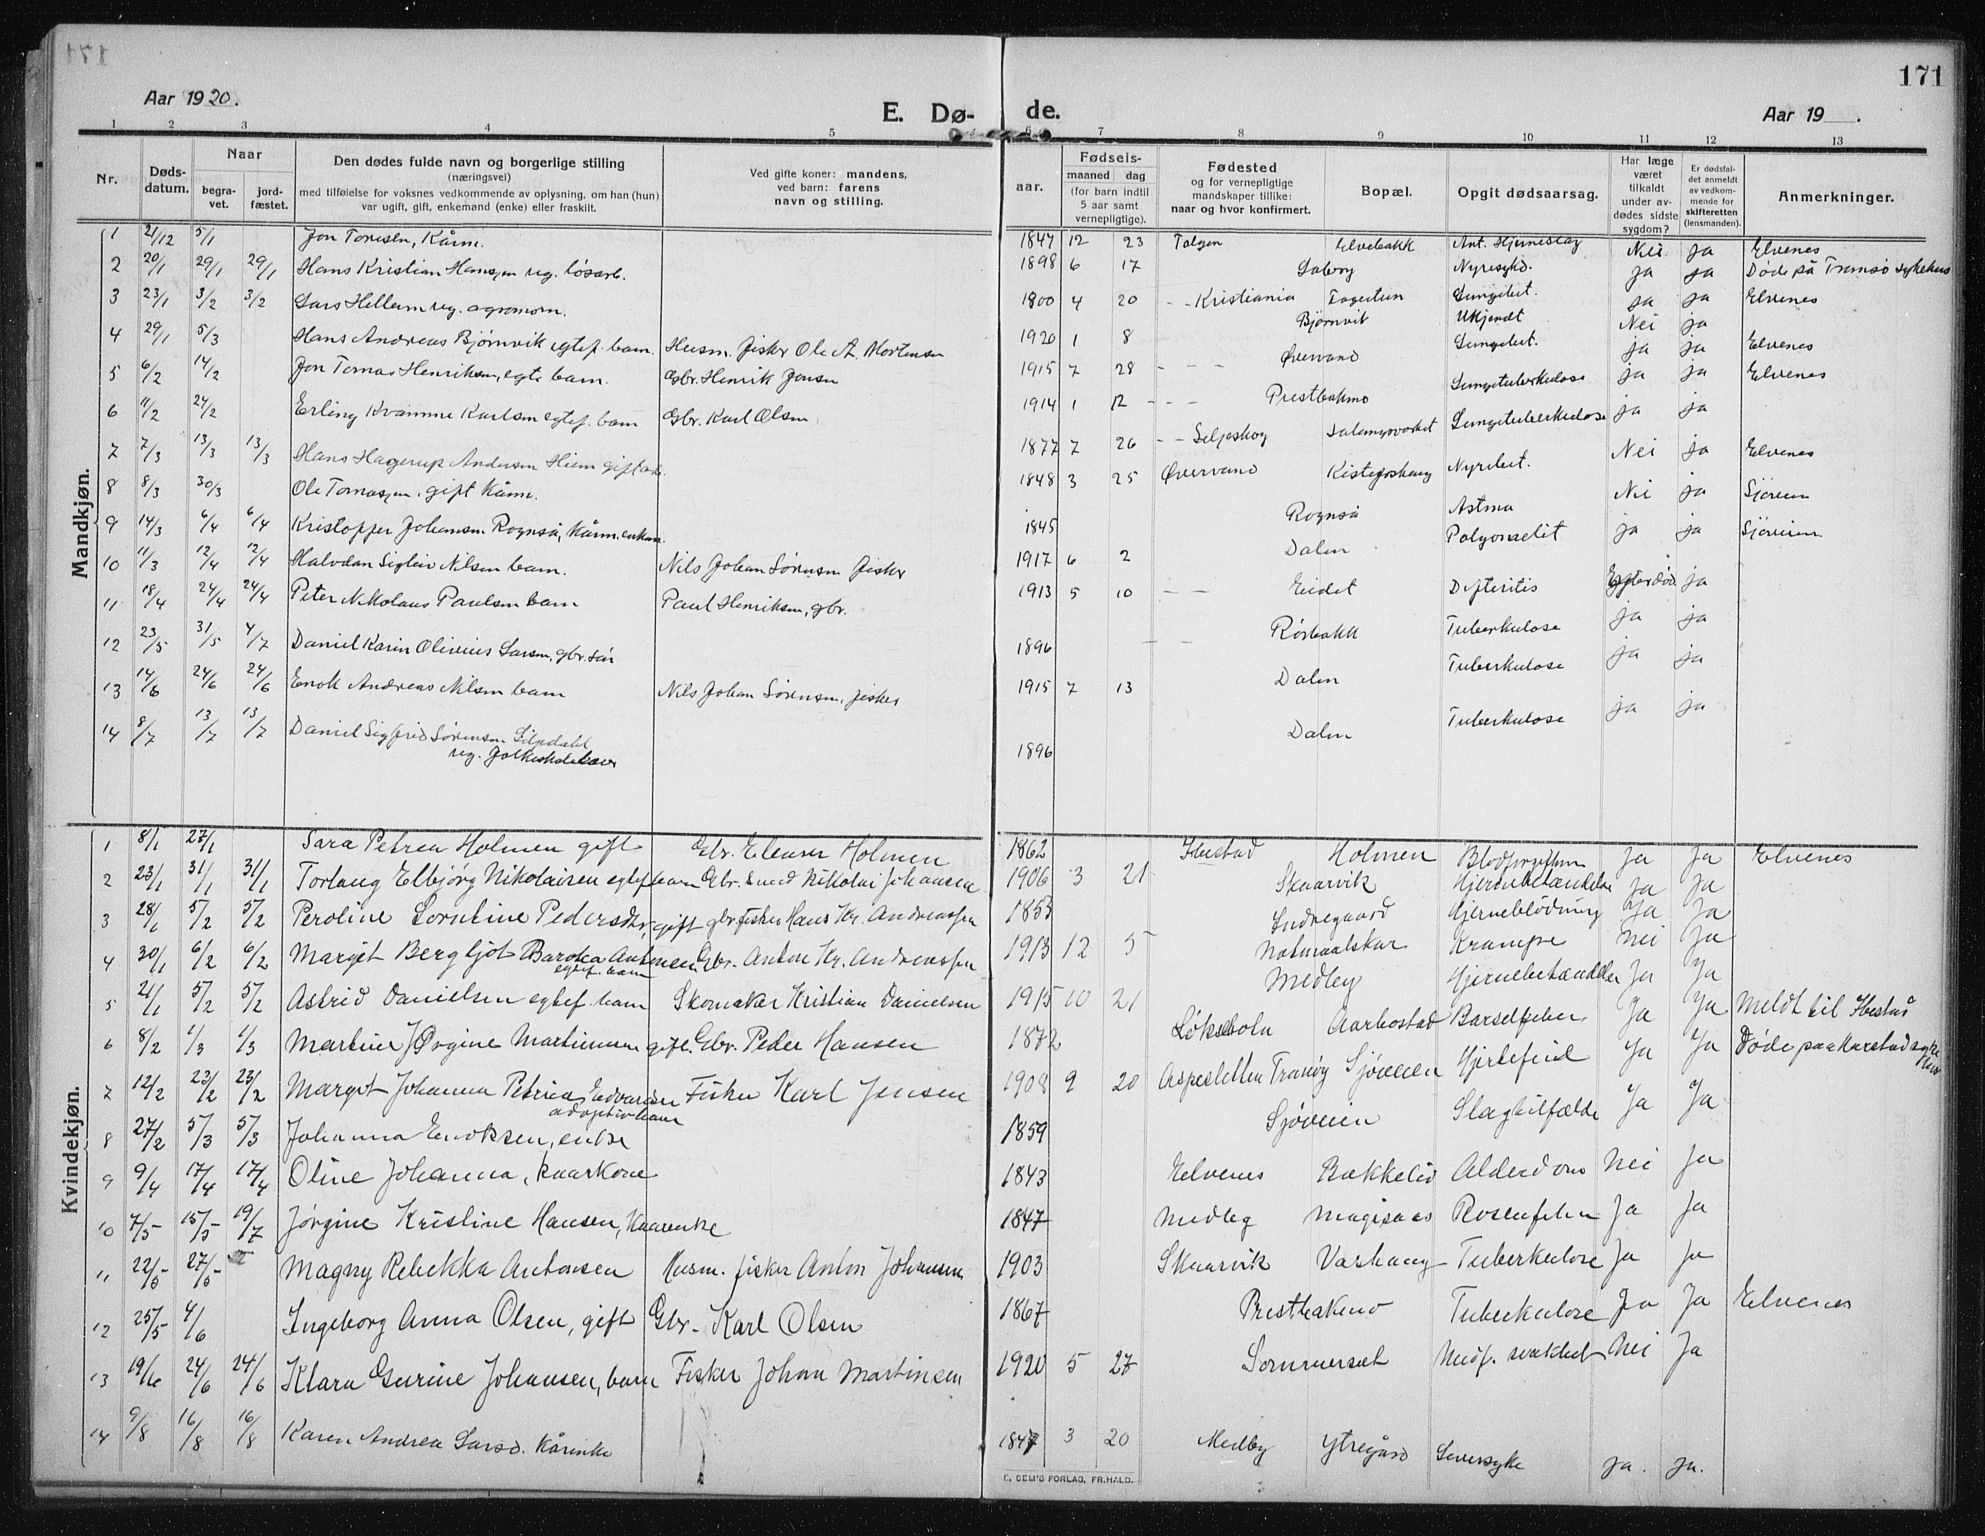 171
Aar 1920.
E. Dø-de.
Aar 19 .
1 2 3 4 5 6 7 8 9 10 11 12 13
Nr.
Døds-datum.
Naar
begra-vet.
jord-fæstet.
Den dødes fulde navn og borgerlige stilling
(næringsvei)
med tilføielse for voksnes vedkommende av oplysning, om han (hun)
var ugift, gift, enkemand (enke) eller fraskilt.
Ved gifte koner: mandens,
ved barn: farens
navn og stilling.
Fødsels-
aar.
maaned dag
(for barn indtil
5 aar samt
vernepligtige).
Fødested
og for vernepligtige
mandskaper tillike:
naar og hvor konfirmert.
Bopæl.
Opgit dødsaarsag.
Har læge
været
tilkaldt
under av-
dødes sidste
sygdom?
Er dødsfal-
det anmeldt
av vedkom-
mende for
skifteretten
(lensmanden).
Anmerkninger.
Mandkjøn.
1 21/12 5/1 Jon Toresen, Kårm. 1847 12 23 Tolgen Elvebakk Ant. Hjerneslag Nei ja Elvenes
2 20/1 29/1 29/1 Hans Kristian Hansen ug. løsarb. 1898 6 17 Soborg Nyresykd. ja ja Døde på Tromsø sykehus
3 23/1 3/2 3/2 Lars Hellem ug. agronom. 1800 4 20 - - Kristiania Fagertun Lungebet. ja ja Elvenes
4 29/1 5/3 Hans Andreas Bjørnvik egtef. barn. Husm. fisker Ole A. Mortensen 1920 1 8 Bjørnvik Ukjendt Nei ja
5 6/2 14/2 Jon Tomas Henriksen, egte barn. Gbr. Henrik Jensen 1915 7 28 - - - Øvervand Lungebet. ja ja Elvenes
6 11/2 24/2 Erling Kvamme Karlsen egtef. barn Gbr. Karl Olsen 1914 1 12 - - - Prestbakmo Lungetuberkulose ja ja Elvenes
7 7/3 13/3 13/3 Hans Hagerup Andersen Hiem gift 1877 7 26 - - Seljeskog Salangsverket Lungetuberkulose ja ja
8 8/3 30/3 Ole Tomassen, gift Kårm. 1848 3 25 Øvervand Kistefoshaug Nyrebet. Nei ja Elvenes
9 14/3 6/4 6/4 Kristoffer Johansen Rognså, Kårm. enkem. 1845 Rognså Astma Nei ja Sjøveien
10 11/3 12/4 12/4 Halvdan Sigleiv Nilsen barn. Nils Johan Sørensen fisker 1917 6 2 Dalen ja ja Sjøveien
11 18/4 24/4 24/4 Peter Nikolaus Paulsen barn Paul Henriksen, gbr. 1913 5 10 - - Eidet Difteritis Efterdød ja
12 23/5 31/5 4/7 Daniel Karin Olivius Larsen, gbr. søn 1896 - - Rørbakk Tuberkulose ja ja
13 14/6 24/6 24/6 Enok Andreas Nilsen barn Nils Johan Sørensen, fisker 1915 7 13 Dalen Tuberkulose ja ja
14 8/7 13/7 13/7 Daniel Sigfred Sørensen Liledalel
ug. Folkeskolelærer 1896 Dalen Tuberkulose ja ja
Kvindekjøn.
1 8/1 27/1 Sara Petrea Holmen gift Gbr. Elenser Holmen 1862 Ibestad Holmen Blodforgiftn Ja Ja Elvenes
2 23/1 31/1 31/1 Torlaug Elbjørg Nikolaisen egtef barn Gbr. Smed Nikolai Johansen 1906 3 21 Skaarvik Hjernebetændelse Ja Ja
3 28/1 5/2 5/2 Peroline Lorntine Pedersdtr, gift gbr. fisker Hans Kr. Andreassen 1853 Indregaard Hjerneblødning Ja Ja
4 30/1 6/2 6/2 Margit Bergljot Barotea Antonsen
egtef. barn Gbr. Anton Kr. Andreassen 1913 12 5 Krampe Nei Ja
5 21/1 5/2 5/2 Astrid Danielsen egtef. barn Skomaker Kristian Danielsen 1915 10 21 Medley Hjernebetændelse Ja Ja
6 8/2 1/3 1/3 Martine Jørgine Martinussen gift. Gbr. Peder Hansen 1872 Løksebotn Aarbostad Barselfeber Ja Ja Meldt til Ibestad
7 12/2 23/2 23/2 Margot Johanna Petrica Edvardsen
adoptivbarn Fisker Karl Jensen 1908 9 20 Aspesletten Tranøy Sjøveien Hjertefeil Ja Ja Døde paa Harstad syke hus
8 27/2 5/3 5/3 Johanna Enoksen, enke 1859 Sjøveien Slagtilfælde Ja Ja
9 9/4 17/4 17/4 Oline Johanna, kaarkone 1843 Elvenes Bakkelid Alderdom Nei Ja
10 7/5 15/5 19/7 Jørgine Kristine Hansen, Kaarenke 1847 Medleg Magisaas Rosenfeber Ja Ja
11 22/5 27/5 Magny Rebekka Antonsen Husm. fisker Anton Johansen 1903 Skaarvik Varhaug Tuberkulose Ja Ja
12 25/5 4/6 Ingeborg Anna Olsen, gift Gbr. Karl Olsen 1867 Prestbakmo Tuberkulose Ja Ja Elvenes
13 19/6 24/6 24/6 Klara Gurine Johansen, barn Fisker Johan Martinsen 1920 5 27 Sommerset Medf. svakhet Nei Ja
14 9/8 16/8 16/8 Karen Andrea Larsd. Kårenke 1847 3 20 Medby Ytregård Leversyke ja. ja.
E. SEM'S FORLAG, FR.HALD.